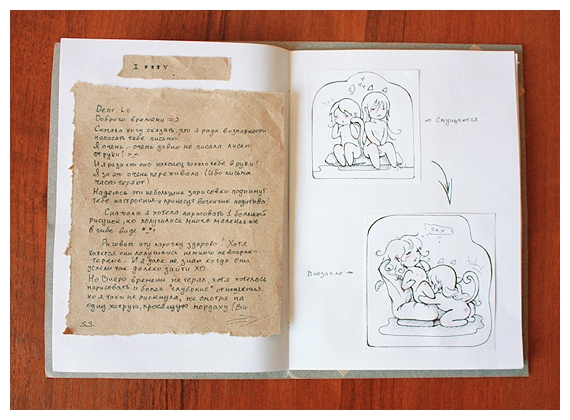 I ****V.
Dear Lo
Доброго времени =)
Сначала хочу сказать, что я рада возможности
написать тебе письмо!
Я очень, очень давно не писала писем
от руки! >.<
И я рада что оно наконец дошло тебе в руки!
Я за это очень переживала. (Ибо письма
часто теряют)
Надеюсь эти небольшие зарисовки поднимут
тебе настроение и принесут вагончик позитива!
Сначала я хотела нарисовать 1 большой
рисунок, но получилось много маленьких
в чиби виде *.*
Рисовать эту парочку здорово! Хотя
немного не
И я даже не знаю когда они
успели так далеко зайти ХО.
Но времени не терял, хотя хотелось
нарисовать и более "глубокие" отношения
но я так и не рискнула, не смотря на
одну хитрую, мордаху
S.S.
← Смущаются
Внезапно →